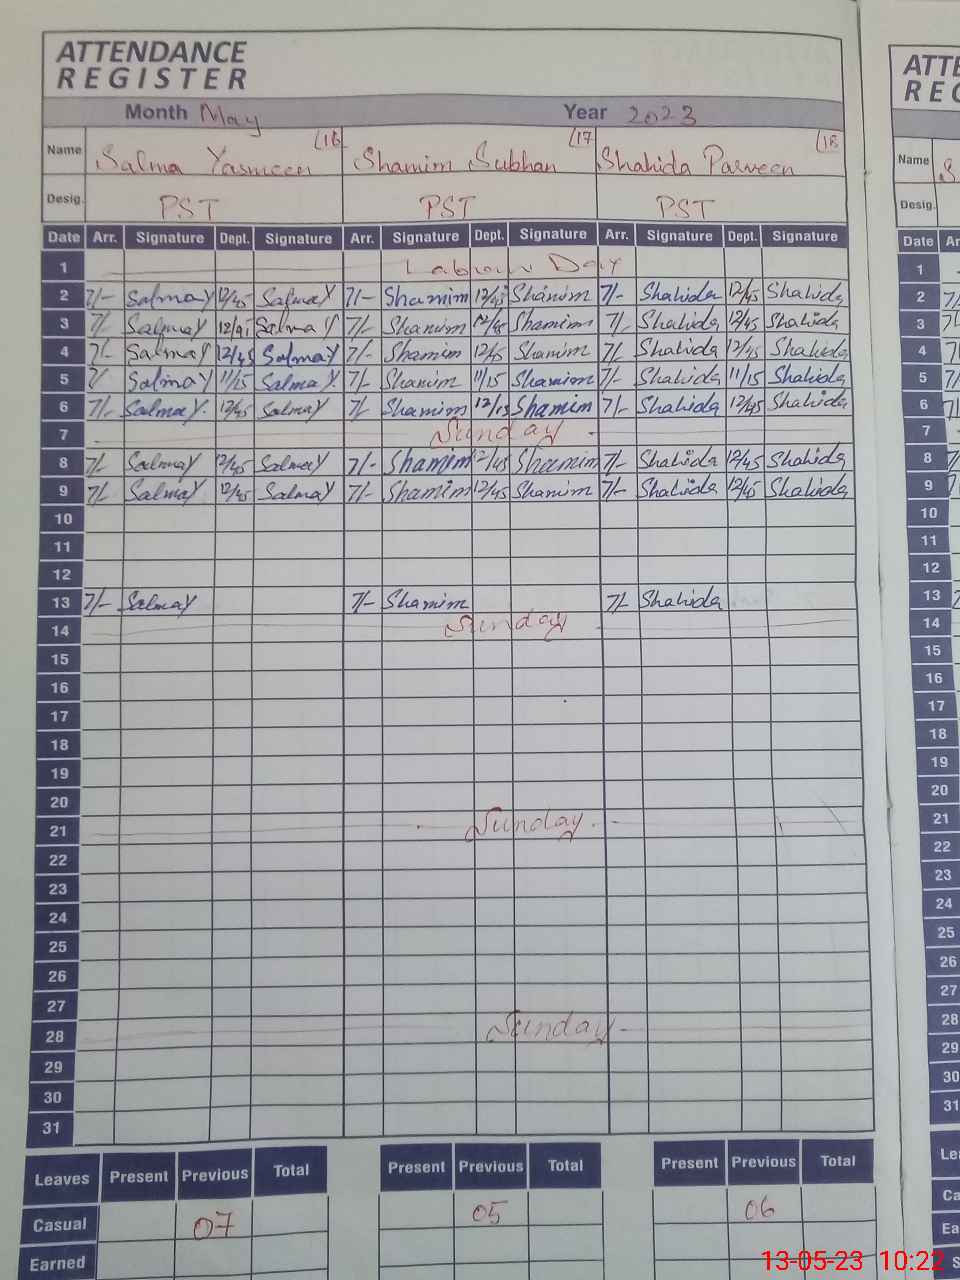 ATTENDANCE
REGISTER
Month May Year 2023
Name Salma Yasmeen 16 Shamim Subhan 17 Shahida Parveen 18
Desig. PST PST PST
Date Arr. Signature Dept. Signature Arr. Signature Dept. Signature Arr. Signature Dept. Signature
1 Labour Day
2 7/- SalmaY 12/45 SalmaY 7/- Shamim 12/45 Shamim 7/- Shahida 12/45 Shahida
3 7/- SalmaY SalmaY 7/- Shamim 12/45 Shamim 7/- Shahida 12/45 Shahida
4 7/- SalmaY 12/45 SalmaY 7/- Shamim 12/45 Shamim 7/- Shahida 12/45 Shahida
5 7/ SalmaY 11/15 SalmaY. 7/- Shamim 11/15 Shamim 7/- Shahida 11/15 Shahida
6 7/- SalmaY. 12/45 SalmaY 7/- Shamim Shamim 7/- Shahida 12/45 Shahida
7 Sunday
8 7/- SalmaY 12/45 SalmaY 7/- Shamim 12/45 Shamim 7/- Shahida 12/45 Shahida
9 7/- SalmaY 12/45 SalmaY 7/- Shamim 12/45 Shamim 7/- Shahida 12/45 Shahida
10
11
12
13 7/- SalmaY 7/- Shamim 7/- Shahida
14 Sunday
15
16
17
18
19
20
21 Sunday
22
23
24
25
26
27
28 Sunday
29
30
31
Leaves Present Previous Total Present Previous Total Present Previous Total
Casual 07 05 06
Earned
ATTE
REG
Name S
Desig.
Date Ar
1
2
3
4
5
6
7
8
9
10
11
12
13
14
15
16
17
18
19
20
21
22
23
24
25
26
27
28
29
30
31
Le
Ca
Ea
13-05-23 10:22